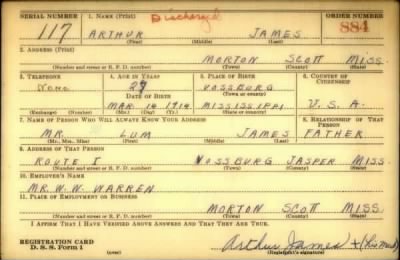 SERIAL NUMBER 1. NAME (Print) Discharged ORDER NUMBER
117 ARTHUR JAMES 884
(First) (Middle) (Last)
2. ADDRESS (Print)
MORTON SCOTT MISS.
(Number and street or R. F. D. number) (Town) (County) (State)
3. TELEPHONE 4. AGE IN YEARS 5. PLACE OF BIRTH 6. COUNTRY OF CITIZENSHIP
NONE VOSSBURG
DATE OF BIRTH (Town or county)
MAR 14 1914 MISSISSIPPI U.S.A.
(Exchange) (Number) (Mo.) (Day) (Yr.) (State or country)
7. NAME OF PERSON WHO WILL ALWAYS KNOW YOUR ADDRESS 8. RELATIONSHIP OF THAT PERSON
MR. LUM JAMES FATHER
(Mr., Mrs., Miss) (First) (Middle) (Last)
9. ADDRESS OF THAT PERSON
ROUTE I VOSSBURG JASPER MISS.
(Number and street or R. F. D. number) (Town) (County) (State)
10. EMPLOYER'S NAME
MR. W. W. WARREN
11. PLACE OF EMPLOYMENT OR BUSINESS
MORTON SCOTT MISS.
(Number and street or R. F. D. number) (Town) (County) (State)
I AFFIRM THAT I HAVE VERIFIED ABOVE ANSWERS AND THAT THEY ARE TRUE.
REGISTRATION CARD
D. S. S. Form 1 (over) Arthur James
(Registrant's signature)